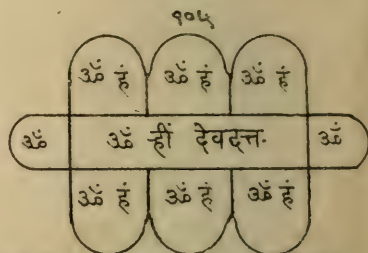 १०५
ॐ हं ॐ हं ॐ हं
ॐ ॐ ह्रीं देवदत्तः ॐ
ॐ हं ॐ हं ॐ हं